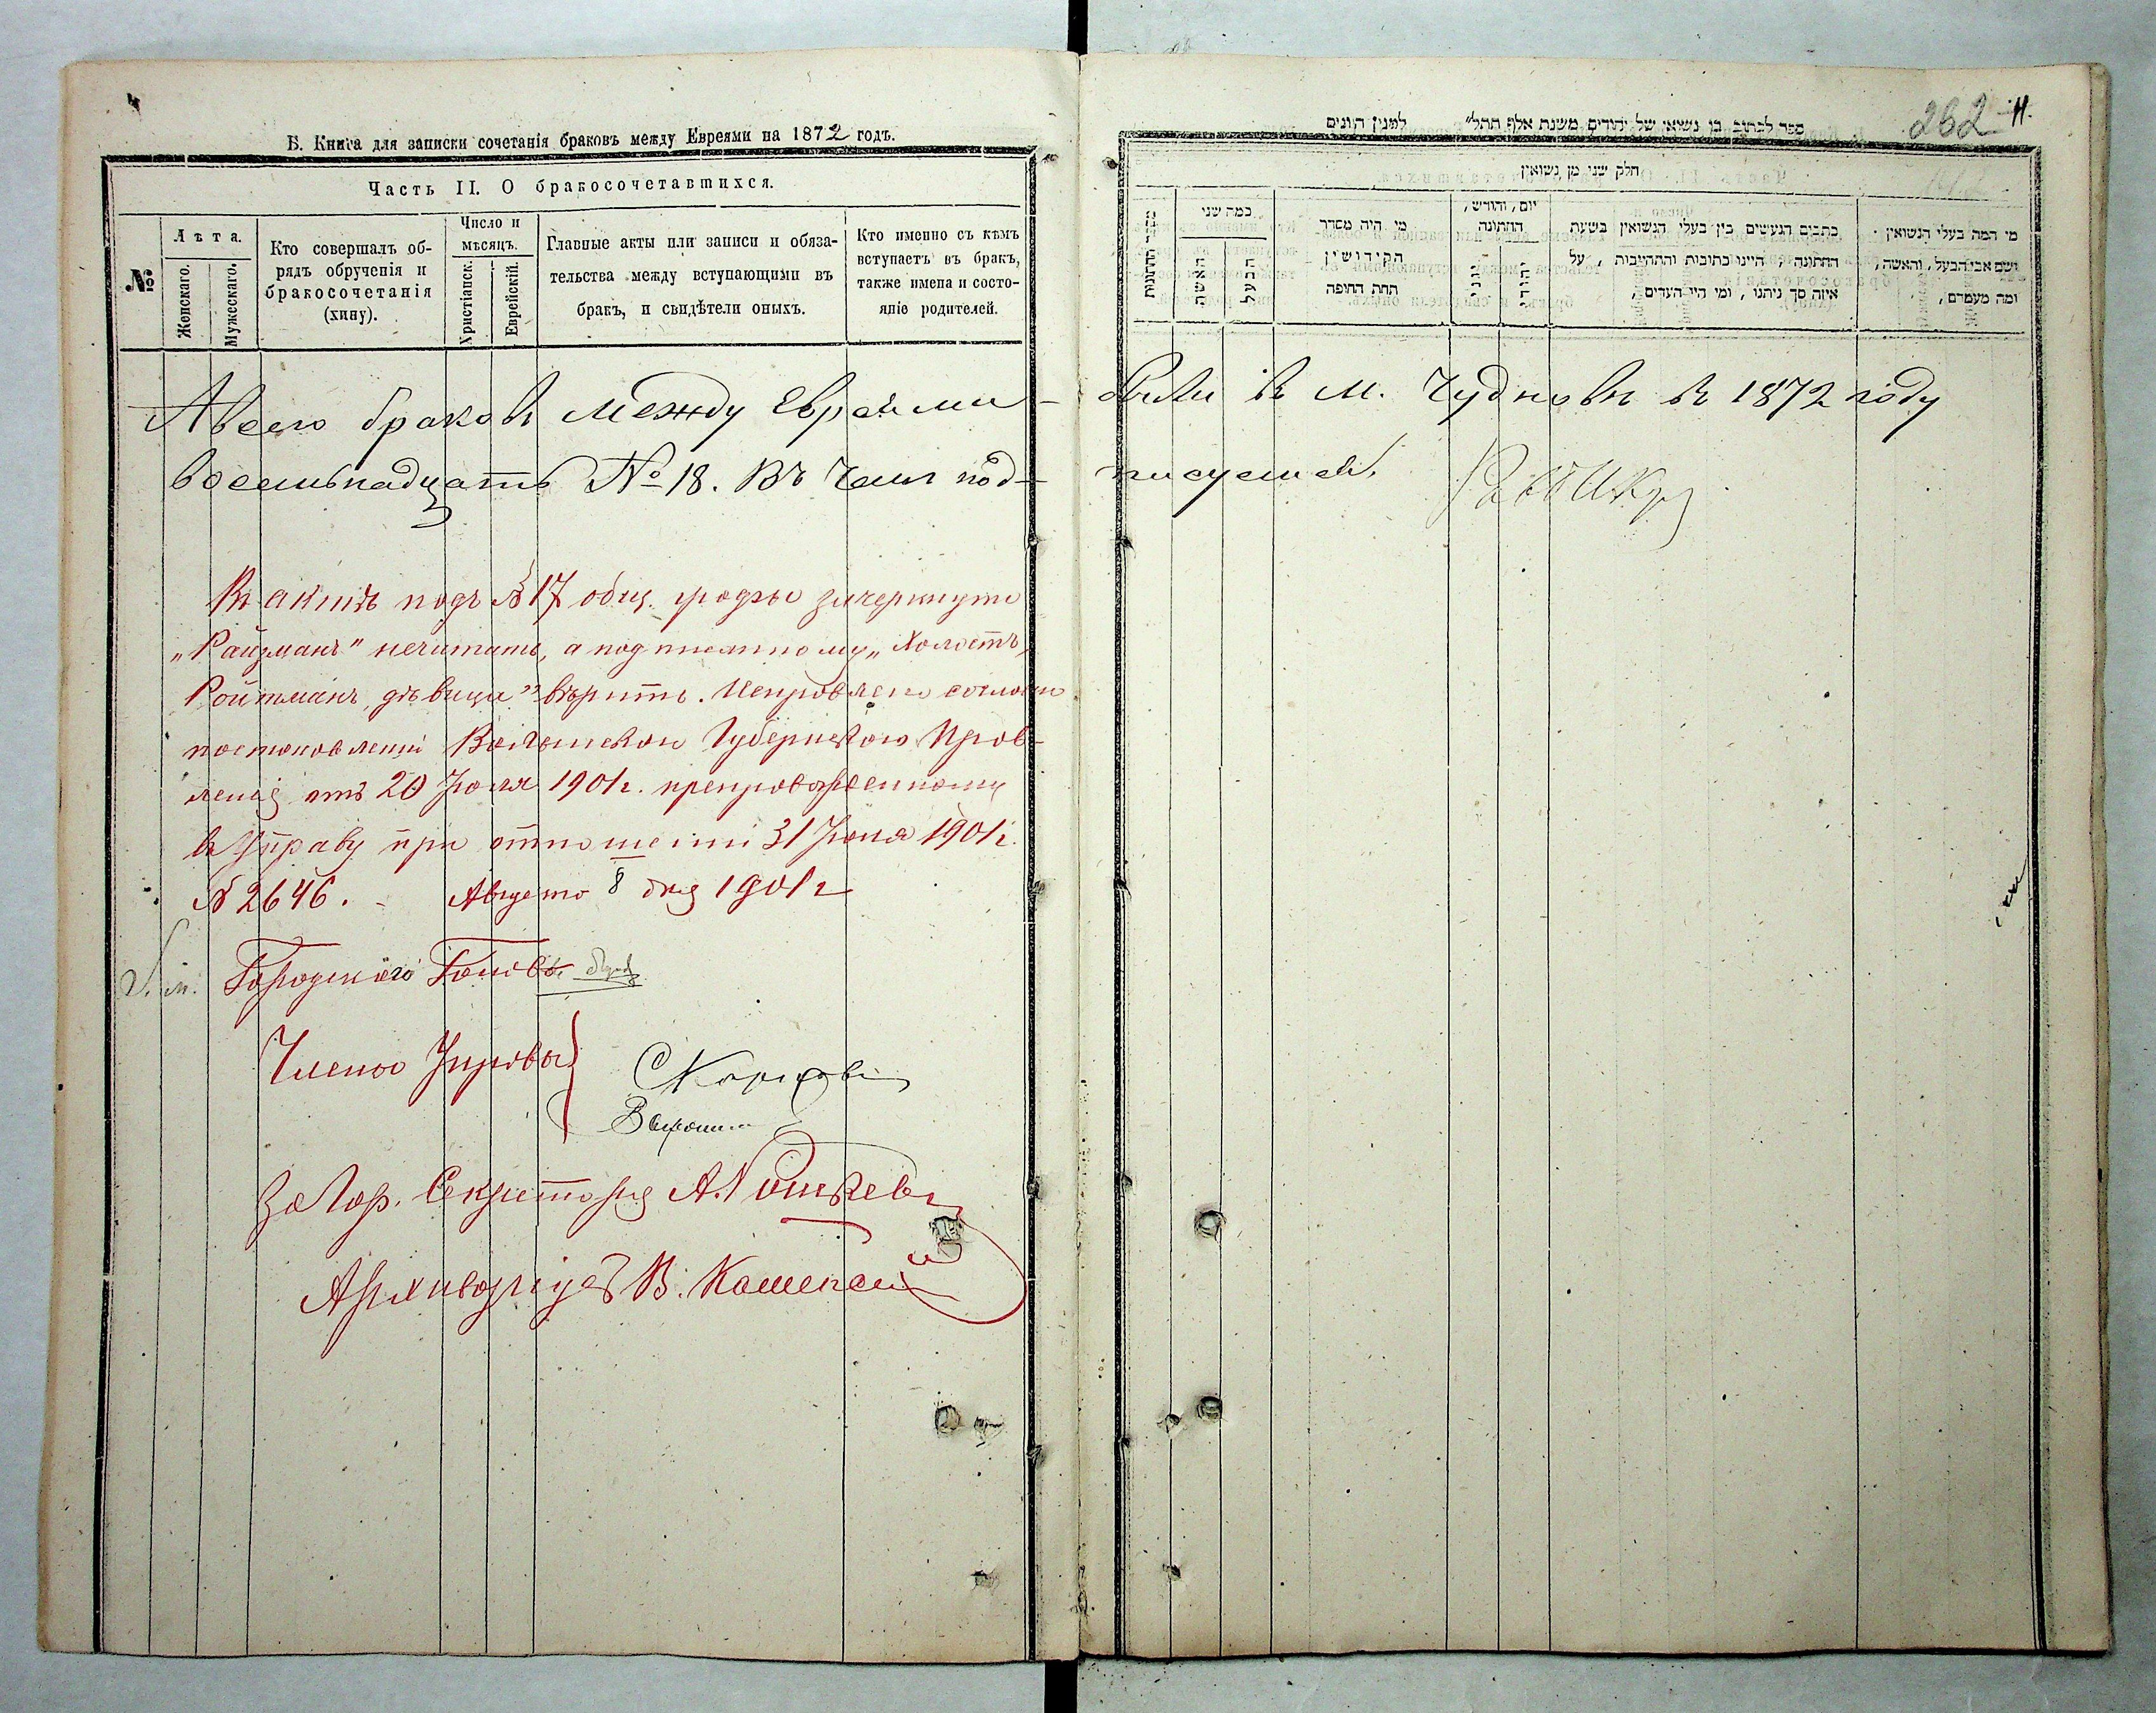 Б. Книга для записки сочетанія браковъ между Евреями на 1872 годъ.
Часть II. О бракосочетавшихся.
№
Лѣта.
Женскаго.
Мужескаго.
Кто совершалъ об-
рядъ обрученія и
бракосочетанія
(хипу).
Число и
мѣсяцъ.
Христіанск.
Еврейскій.
Главные акты или записи и обяза-
тельства между вступающими въ
бракъ, и свидѣтели оныхъ.
Кто именно съ кѣмъ
вступаетъ въ бракъ,
также имена и состо-
яніе родителей.
А всего браковъ между Евреями
восемьнадцать № 18. Въ чемъ под-
Въ актѣ подъ № 17 общ. графы зачеркнуто
„Райзманъ" нечитать, а подписанному „Холостъ,
Ройтманъ, дѣвица" вѣрить. Исправлено согласно
постановленія Волынскаго Губернскаго Прав-
ленія отъ 20 Іюля 1901 г. препровожденному
въ Управу при отношеніи 31 Іюля 1901 г.
№ 2646. Августа 8 дня 1901 г.
Городского Головы
Члены Управы
За Гор. Секретаря А.
Архиваріусъ В.
262 11.
ספר לכתוב בו נשואי של יהודים משנת אלף תתל״ למנין הונים
חלק שני מן נשואין
מי המה בעלי הנשואין
ושם אבי הבעל, והאשה,
ומה מעמדם,
כתבים הנעשים בין בעלי הנשואין בשעת
החתונה, היינו כתובות והתחייבות, על
איזה סך ניתנו, ומי היו העדים,
יום, וחודש,
החתונה
יהודי
נוצרי
מי היה מסדר
הקידושין
תחת החופה
כמה שני
הבעל
האשה
מספר החתונות
были въ м. Чудновѣ въ 1872 году
писуемся.